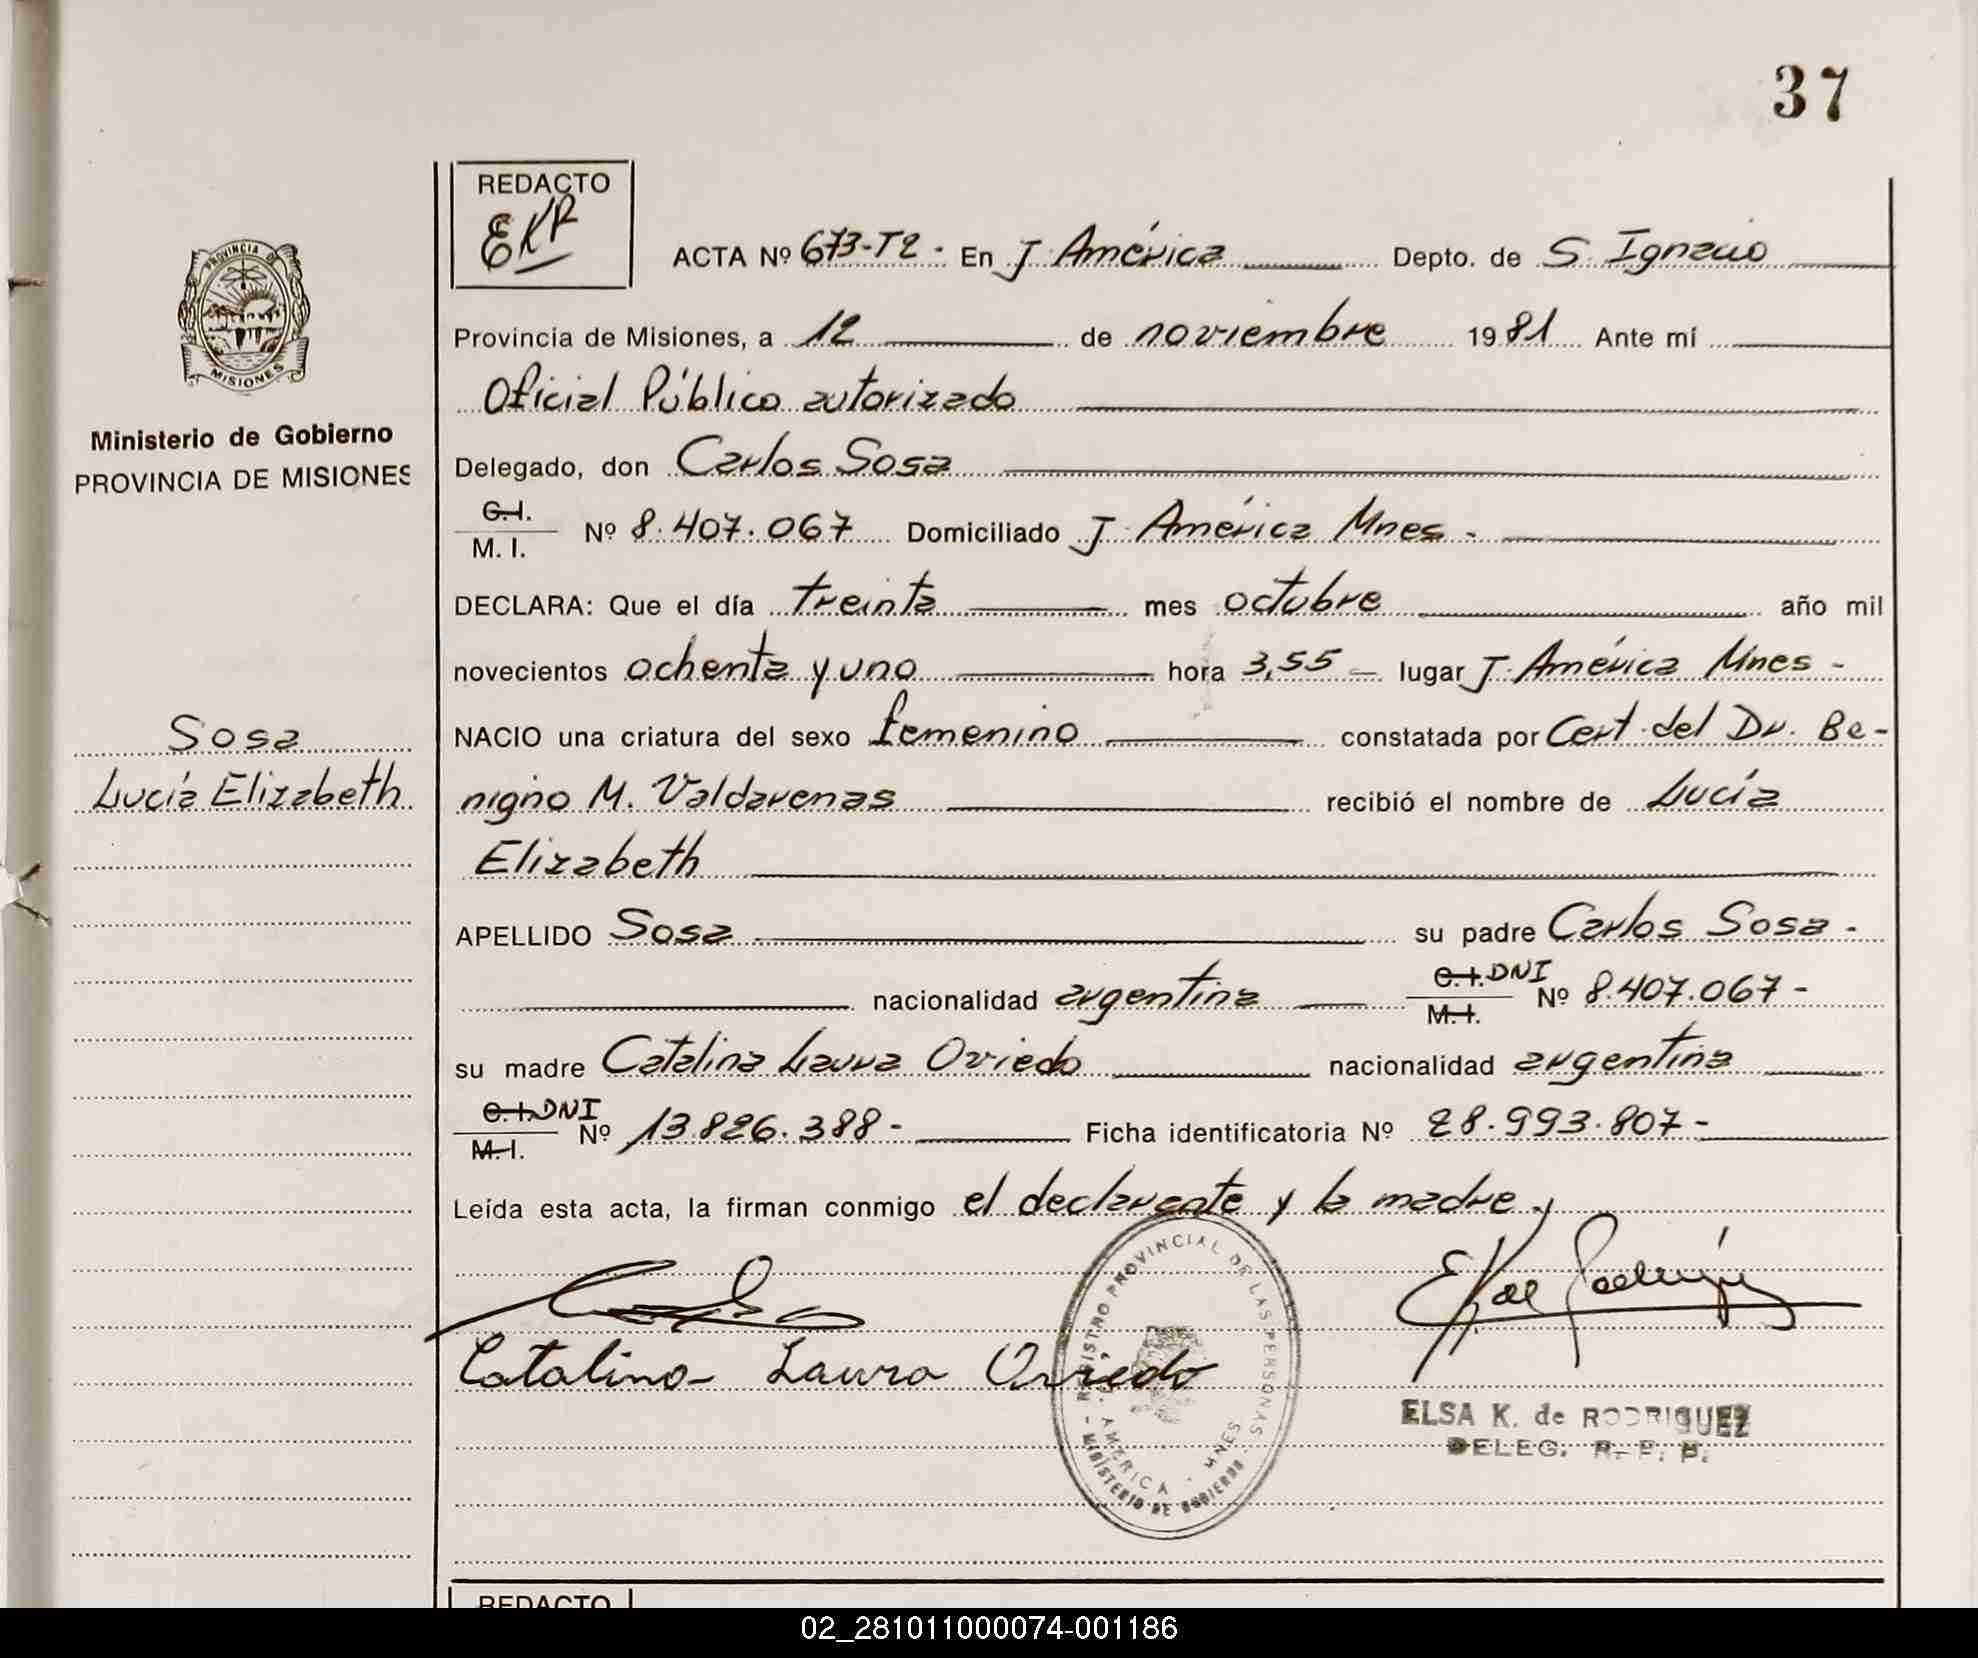 37
REDACTO
EKR
ACTA Nº 673-T2 - En J. América Depto. de S. Ignacio
PROVINCIA DE
MISIONES
Provincia de Misiones, a 12 de noviembre 1981 Ante mí
Oficial Público autorizado
Ministerio de Gobierno
PROVINCIA DE MISIONES
Delegado, don Carlos Sosa
C.I.
M. I. Nº 8.407.067 Domiciliado J. América Mnes -
DECLARA: Que el día treinta mes octubre año mil
novecientos ochenta y uno hora 3,55 - lugar J. América Mnes -
Sosa
Lucía Elizabeth
NACIO una criatura del sexo femenino constatada por Cert. del Dr. Be-
nigno M. Valdarenas recibió el nombre de Lucía
Elizabeth
APELLIDO Sosa su padre Carlos Sosa -
nacionalidad argentina C.I. DNI M.I. Nº 8.407.067 -
su madre Catalina Laura Oviedo nacionalidad argentina
C.I. DNI M.I. Nº 13.826.388 - Ficha identificatoria Nº 28.993.807 -
Leída esta acta, la firman conmigo el declarante y la madre.
Catalina Laura Oviedo
REGISTRO PROVINCIAL DE LAS PERSONAS
AMERICA - MNES
MINISTERIO DE GOBIERNO
ELSA K. de RODRIGUEZ
DELEG. R. P. P.
REDACTO
02_281011000074-001186